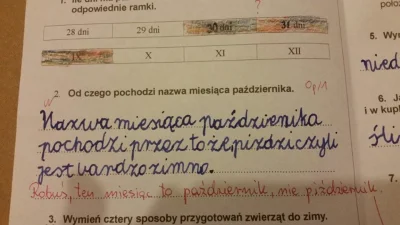 1. Ile dni ma
odpowiednie ramki. ?
28 dni 29 dni 30 dni 31 dni
IX X XI XII
2. Od czego pochodzi nazwa miesiąca października. 0p/1
Nazwa miesiąca października
pochodzi przez to że piździ czyli
jest bardzo zimno.
Robuś, ten miesiąc to październik, nie piździernik.
3. Wymień cztery sposoby przygotowań zwierząt do zimy.
5. Wy
nied
6. Ja
i w kup
śli
7.